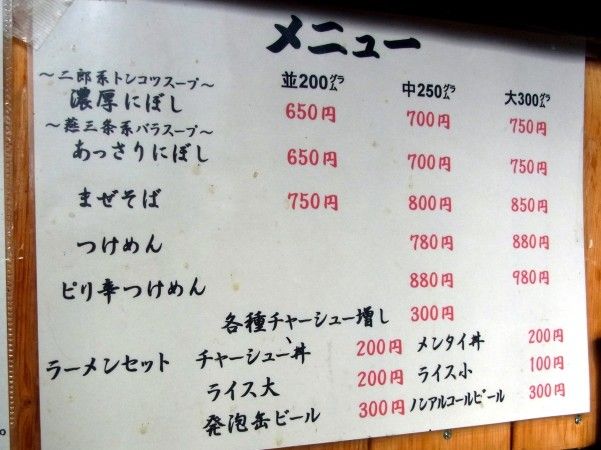 メニュー
並200㌘ 中250㌘ 大300㌘
～二郎系トンコツスープ～
濃厚にぼし 650円 700円 750円
～燕三条系バラスープ～
あっさりにぼし 650円 700円 750円
まぜそば 750円 800円 850円
つけめん 780円 880円
ピリ辛つけめん 880円 980円
各種チャーシュー増し 300円
ラーメンセット チャーシュー丼 200円 メンタイ丼 200円
ライス大 200円 ライス小 100円
発泡缶ビール 300円 ノンアルコールビール 300円